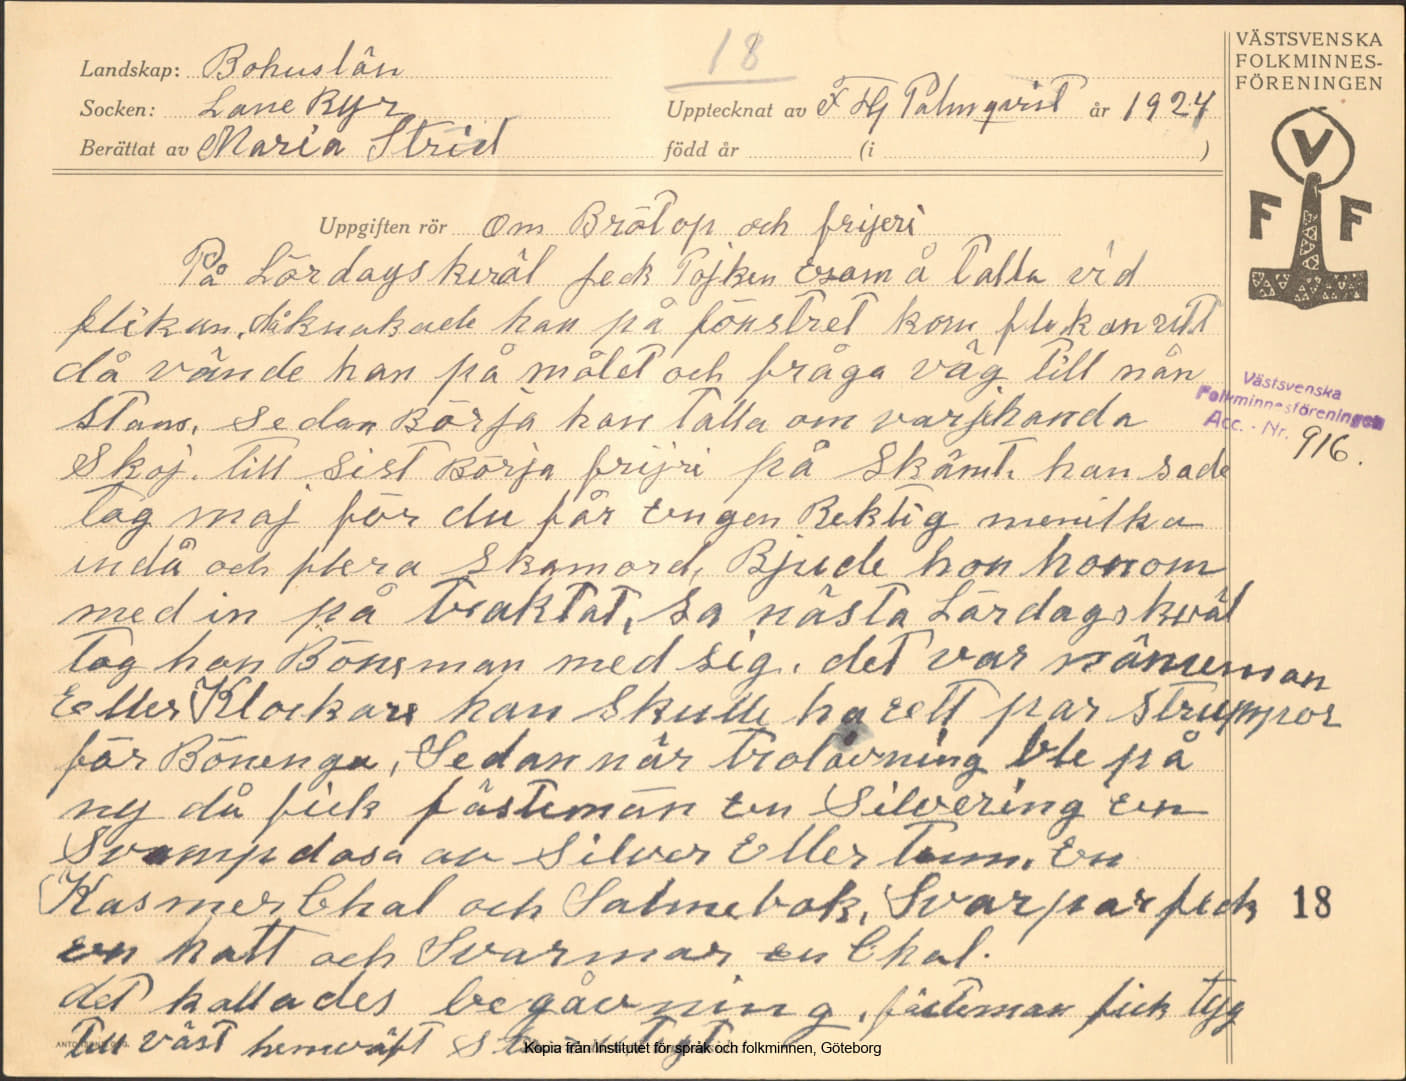 18
VÄSTSVENSKA
FOLKMINNES-
FÖRENINGEN
V
F F
Landskap: Bohuslän
Socken: Lane Ryr
Berättat av Maria Strid
Upptecknat av F Hj Palmqvist år 1924
född år (i )
Uppgiften rör Om Brölop och frijeri
På Lördagskwäl feck Pojken som å talla vid
flikan, då knakade han på fönstret kom flikan utt
då vände han på målet och fråga väg till nån
stans, sedan Börja han talla om varjehanda
Skoj. till sist Börja frijri på Skämt. han sade
tag maj för du får Engen Rektig meniska
indå och flera Skamord, Bjude hon honom
med in på traktat, sa nästa Lördagskwäl
tog han Bönsman med sig. det var nämneman
Eller Klockare han Skulle ha ett par strumpor
för Bönenga, Sedan när trolovning ble på
ny då fick fästeman En Silvering En
Svampdosa av Silver Eller tenn. En
Kasmer Chal och Salmebok, Svarpar feck
en hatt och Svarmor en Chal.
det kallades begåvning. fästeman fick tyg
till väst hemväft
Västsvenska
Folkminnesföreningen
Acc. - Nr. 916.
18
Kopia från Institutet för språk och folkminnen, Göteborg